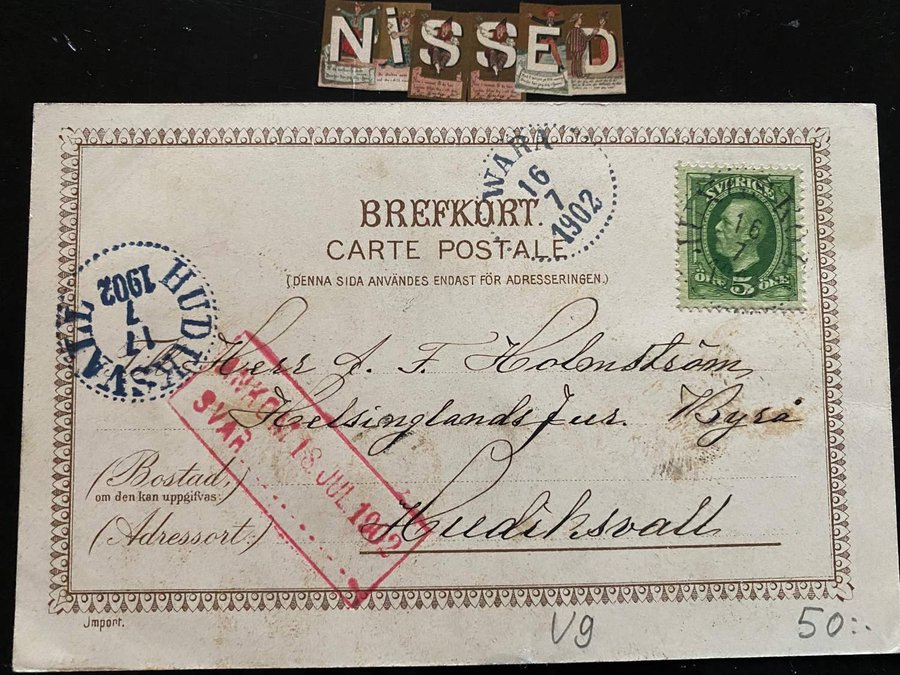 NISSED
WARA
16
7
1902
BREFKORT.
CARTE POSTALE
(DENNA SIDA ANVÄNDES ENDAST FÖR ADRESSERINGEN.)
SVERIGE
16
7
5
ÖRE
HUDIKSVALL
17
7
1902
Herr A. F. Holmström
Helsinglands Jur. Byrå
Hudiksvall
18 JUL 1902
SVAR
(Bostad)
om den kan uppgifvas:
(Adressort:)
Import.
Vg
50:-